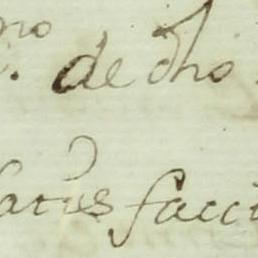 no
. de dho
satisfacci